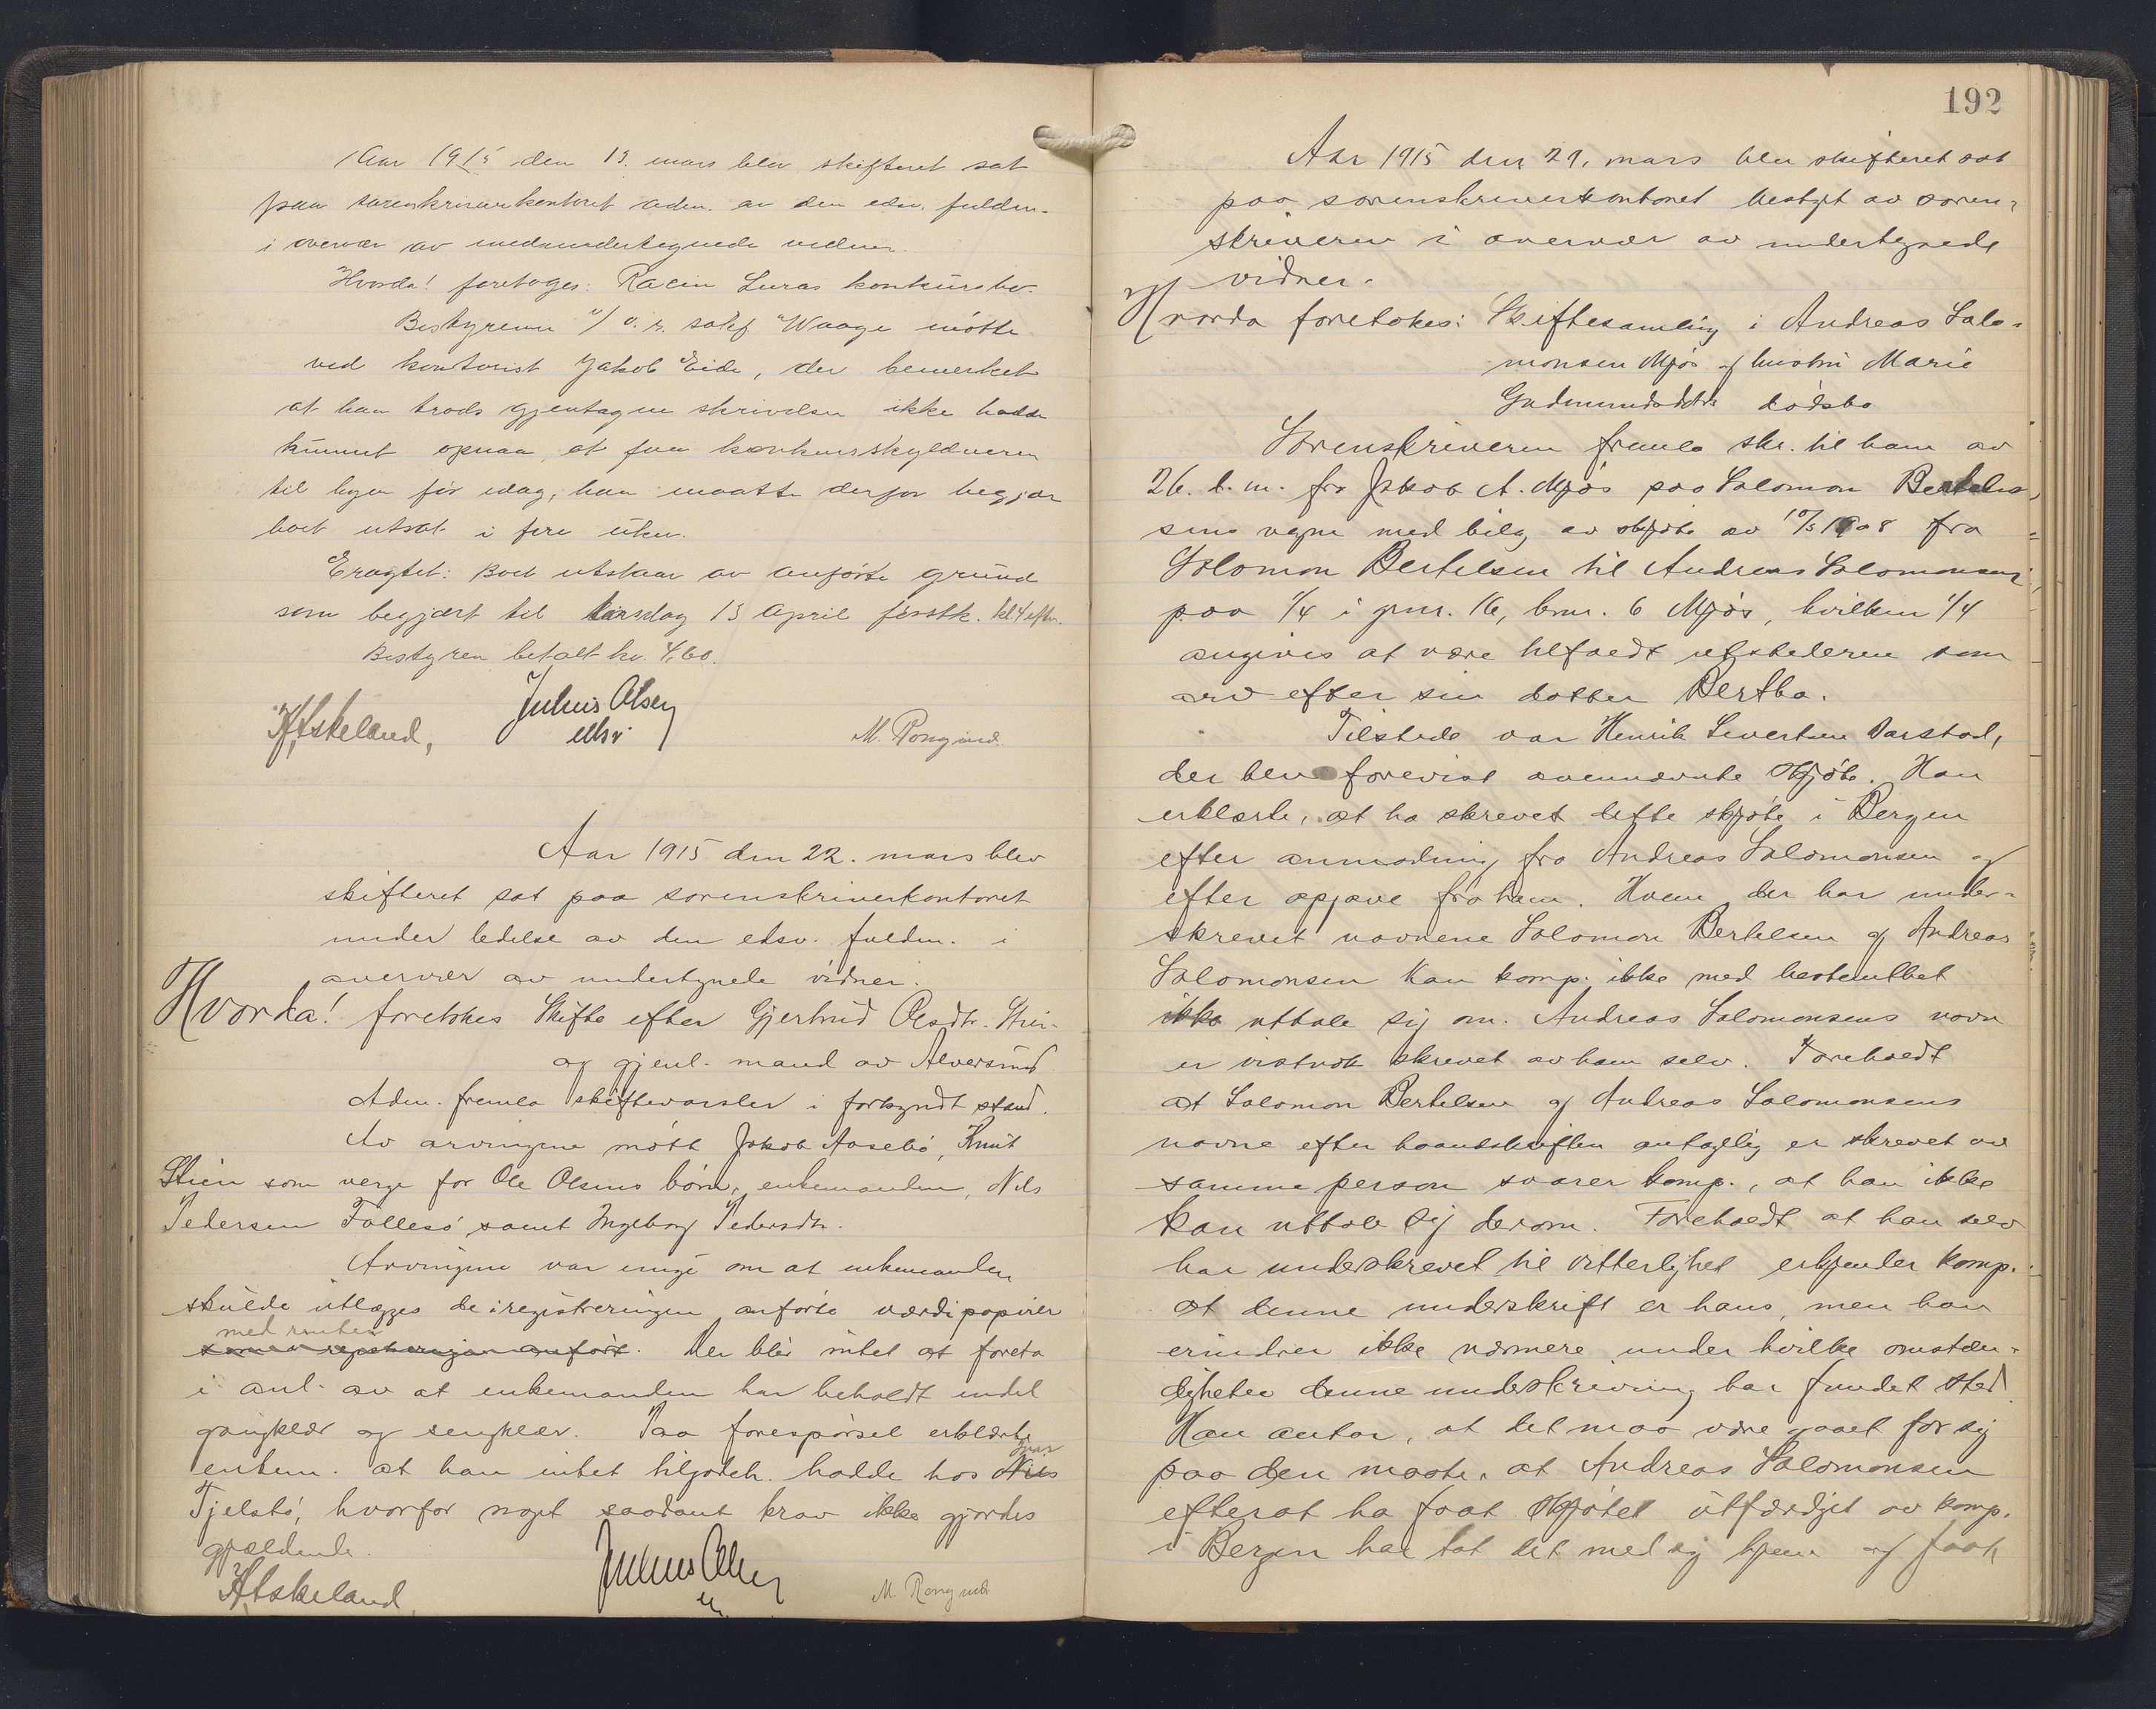 Aar 1915 den 13. mars blev skifteret sat
paa sorenskriverkontoret adm. av den edsv. fuldm.
i overvær av medundertegnede vidner.
Hvorda! foretoges: Racin Luras konkursbo.
Bestyreren v/ o.r. sakf. Waage mötte
ved kontorist Jakob Eide, der bemerket
at han trods gjentagne skrivelser ikke hadde
kunnet opnaa at faa konkursskyldneren
til byen før idag, han maatte derfor begjær
boet utsat i fire uker.
Eragtet: Boet utstaar av anførte grund
som begjært til tirsdag 13 April förstk. kl. 4 efm.
Bestyren betalt kr. 4,60.
Askeland, Julius Olsen M. Rongved
Aar 1915 den 22. mars blev
skifteret sat paa sorenskriverkontoret
under ledelse av den edsv. fuldm. i
overvær av undertegnede vidner.
Hvorda! foretokes Skifte efter Gjertrud Olsdtr. Stien
og gjenl. mand av Alversund.
Adm. fremla skiftevarsler i forkyndt stand.
Av arvingene mött Jakob Aasebö, Knut
Stien som verge for Ole Olsens børn, enkemanden, Nils
Pedersen Follesö samt Ingeborg Pedersdtr.
Arvingene var enige om at enkemanden
skulde utlægges de i registreringen anförte værdipapirer
med renter
som i registreringen anfört. Der blev intet at foreta
i anl. av at enkemanden har beholdt endel
gangklær og sengklær. Paa forespörsel erklærte
enkem. at han intet tilgodeh. hadde hos Nils
Tjelstö, hvorfor noget saadant krav ikke gjordes
gjældende.
Askeland Julius Olsen M. Rongved
192
Aar 1915 den 29. mars blev skifteret sat
paa sorenskriverkontoret bestyrt av soren-
skriveren i overvær av undertegnede
vidner.
Hvorda foretokes: Skiftesamling i Andreas Salo-
monsen Mjös og hustru Marie
Gudmundsdatters dödsbo
Sorenskriveren fremla skr. til ham av
26. d.m. fra Jakob A. Mjös paa Salomon Bertel-
sens vegne med bilag av skjöte av 10/3 1908 fra
Salomon Bertelsen til Andreas Salomonsen
paa 1/4 i gnr. 16, bnr. 6 Mjös, hvilken 1/4
angives at være tilfaldt utstederen som
arv efter sin datter Bertha.
Tilstede var Henrik Sivertsen Varstad,
der blev forevist ovennævnte skjöte. Han
erklærte, at ha skrevet dette skjöte i Bergen
efter anmodning fra Andreas Salomonsen og
efter opgave fra ham. Hvem der har under-
skrevet navnene Salomon Bertelsen og Andreas
Salomonsen kan komp. ikke med bestemthet
ikke uttale sig om. Andreas Salomonsens navn
er vistnok skrevet av ham selv. Foreholdt
at Salomon Bertelsen og Andreas Salomonsens
navne efter haandskriften antagelig er skrevet av
samme person svarer komp., at han ikke
kan uttale sig derom. Foreholdt at han selv
har underskrevet til vitterlighet erkjender komp.
at denne underskrift er hans, men han
erindrer ikke nærmere under hvilke omstæn-
digheter denne underskrivning har fundet sted
Han antar, at det maa være gaaet for sig
paa den maate, at Andreas Salomonsen
efterat ha faat skjötet utfærdiget av komp.
i Bergen har tat det med sig hjem og faat